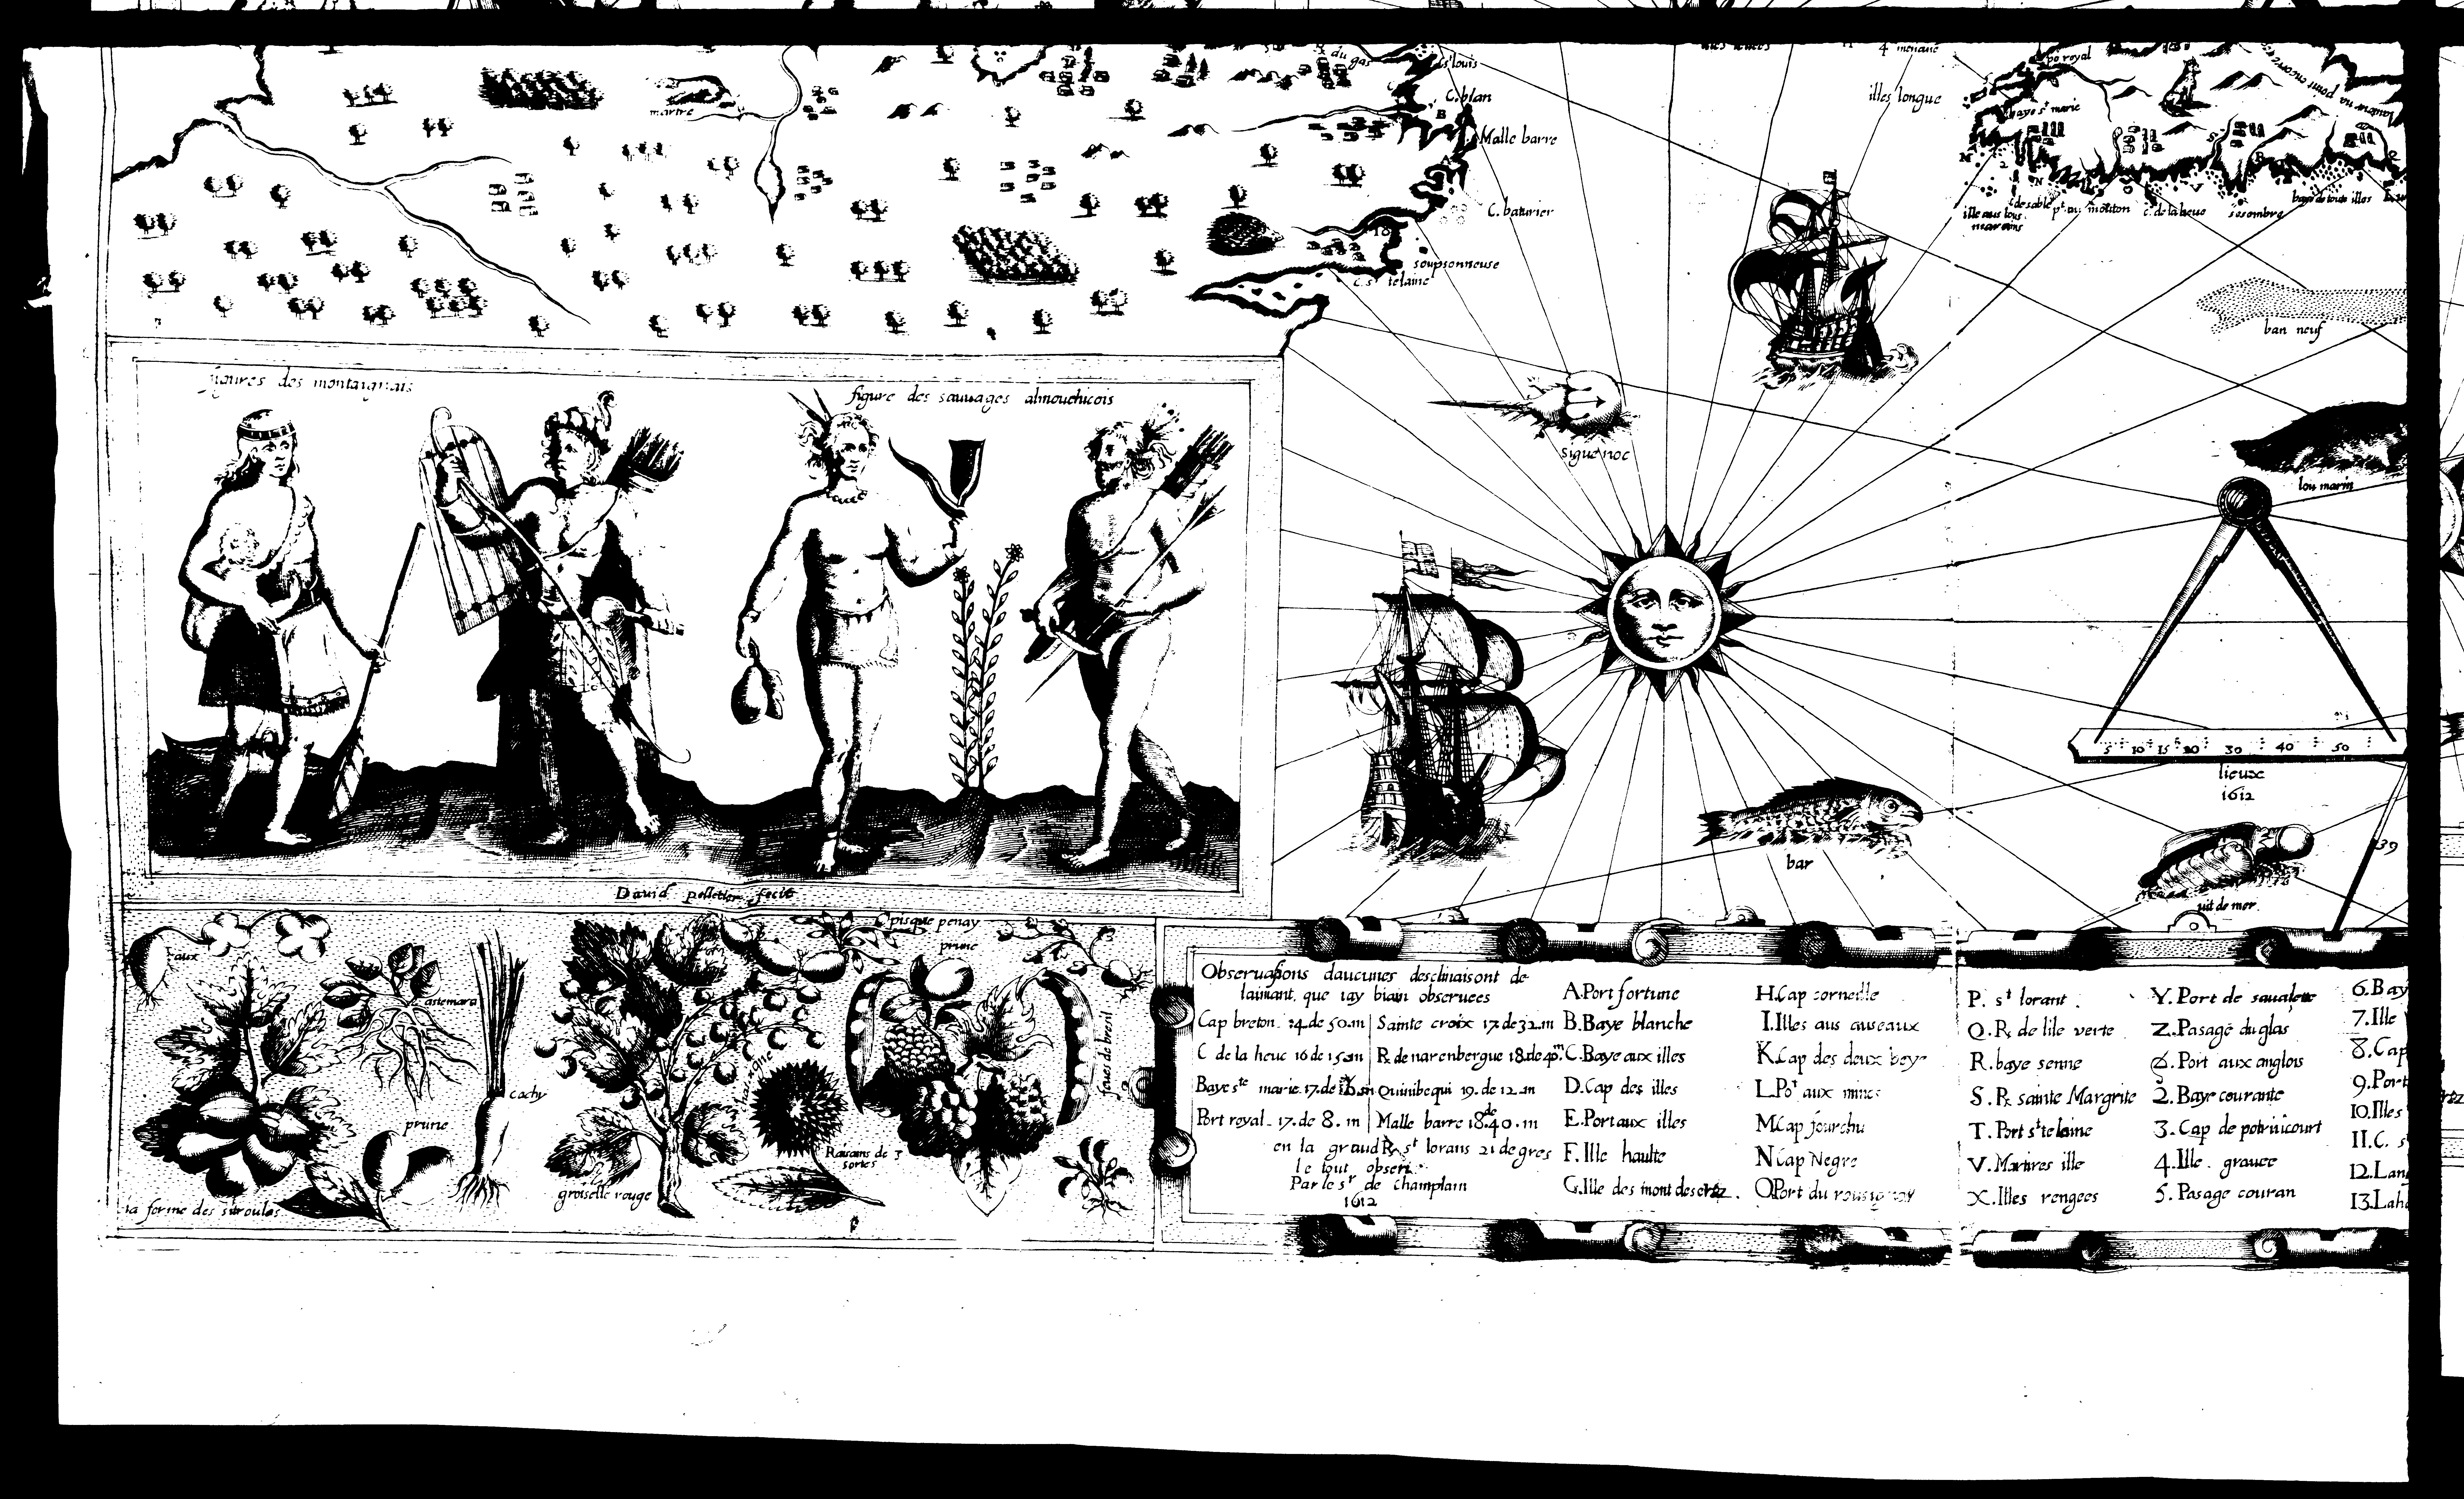 du gas
st louis
C. blan
Malle barre
C. baturier
soupsonneuse
C. st telaine
illes longue
po royal
baye st marie
ille aus lous
marains
c. de la heue
sesembre
baye de toute illes
ban neuf
figures des montaignais
figure des sauuages almouchicois
siguenoc
lou marin
5 10 15 20 30 40 50
lieux
1612
bar
39
Dauid pelletier fecit
pisque penay
prune
astemara
cachy
prune
feues de bresil
Raisains de 3
sortes
groiselle rouge
la forme des sitroules
Obseruasions daucunes desclinaisont de
laimant que iay biain obseruees
Cap breton. 14.de 50.m Sainte croix 17.de 32.m
C de la heue 16 de 15.m R. de narenbergue 18.de 40.m
Baye ste marie.17.de m Quinibequi 19.de 12.m
Port royal. 17.de 8.m Malle barre 18.de 40.m
en la grand R. st lorans 21 degres
le tout
Par le sr de Champlain
1612
A.Port fortune
B.Baye blanche
C.Baye aux illes
D.Cap des illes
E.Port aux illes
F.Ille haulte
G.Ille des mont desertz.
H.Cap corneille
I.Illes aus auseaux
K.Cap des deux beye
L.Pot aux mines
M.Cap fourchu
N.Cap Negre
O.Port du rousignoy
P. st lorant
Q.R. de lile verte
R.baye senne
S.R. sainte Margrite
T.Port ste laine
V.Martires ille
X.Illes rengees
Y.Port de saualette
Z.Pasage du glas
&.Port aux anglois
2.Baye courante
3.Cap de potrincourt
4.Ille grauee
5.Pasage couran
6.Bay
7.Ille
8.Cap
9.Port
10.Illes
11.C. s
12.Lan
13.Lah